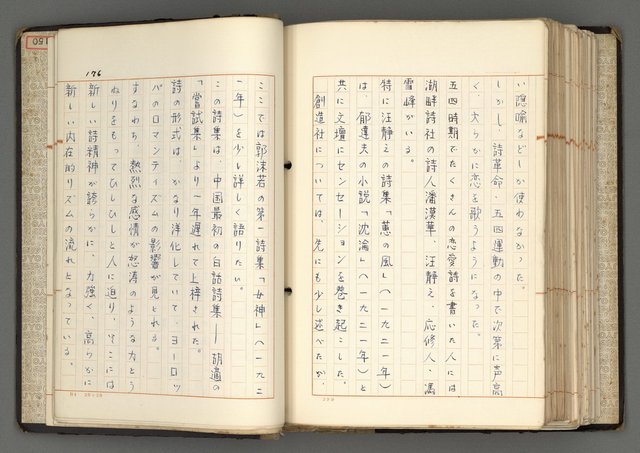 い隠喩などしか使わなかった。
しかし、詩革命・五四運動の中で次第に声高
く、大らかに恋を歌うようになった。
五四時期でたくさんの恋愛詩を書いた人には、
湖畔詩社の詩人潘漢華、汪静之、応修人、馮
雪峰がいる。
特に汪静之の詩集「蕙の風」(一九二一年)
は、郁達夫の小説「沈淪」(一九二一年)と
共に文壇にセンセーションを巻き起こした。
創造社については、先にも少し述べたが、
176
ここでは郭沫若の第一詩集「女神」(一九二
一年)を少し詳しく語りたい。
この詩集は、中国最初の白話詩集—胡適の
「嘗試集」より一年遅れて上梓された。
詩の形式は、かなり洋化していて、ヨーロッ
パのロマンティズムの影響が見とれる。
すなわち、熱烈な感情が怒涛のような力とう
ねりをもってひしひしと人に迫り、そこには
新しい詩精神が誇らかに、力強く、高らかに
新しい内在的リズムの流れとなっている。
150